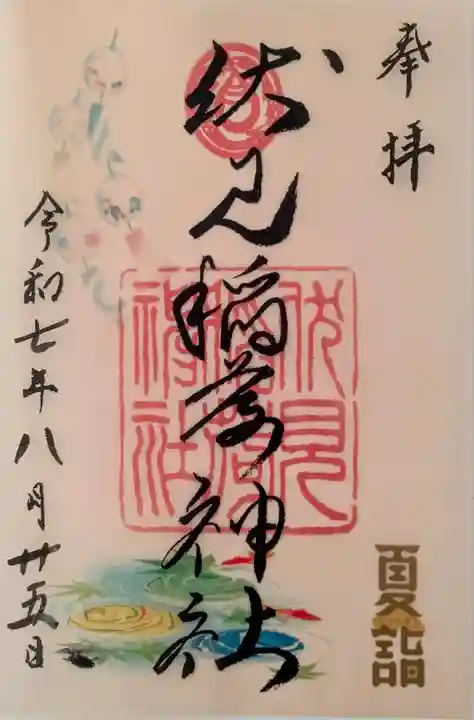 奉拝
伏見稲荷神社
伏見
稲荷
神社
夏詣
令和七年八月廿五日